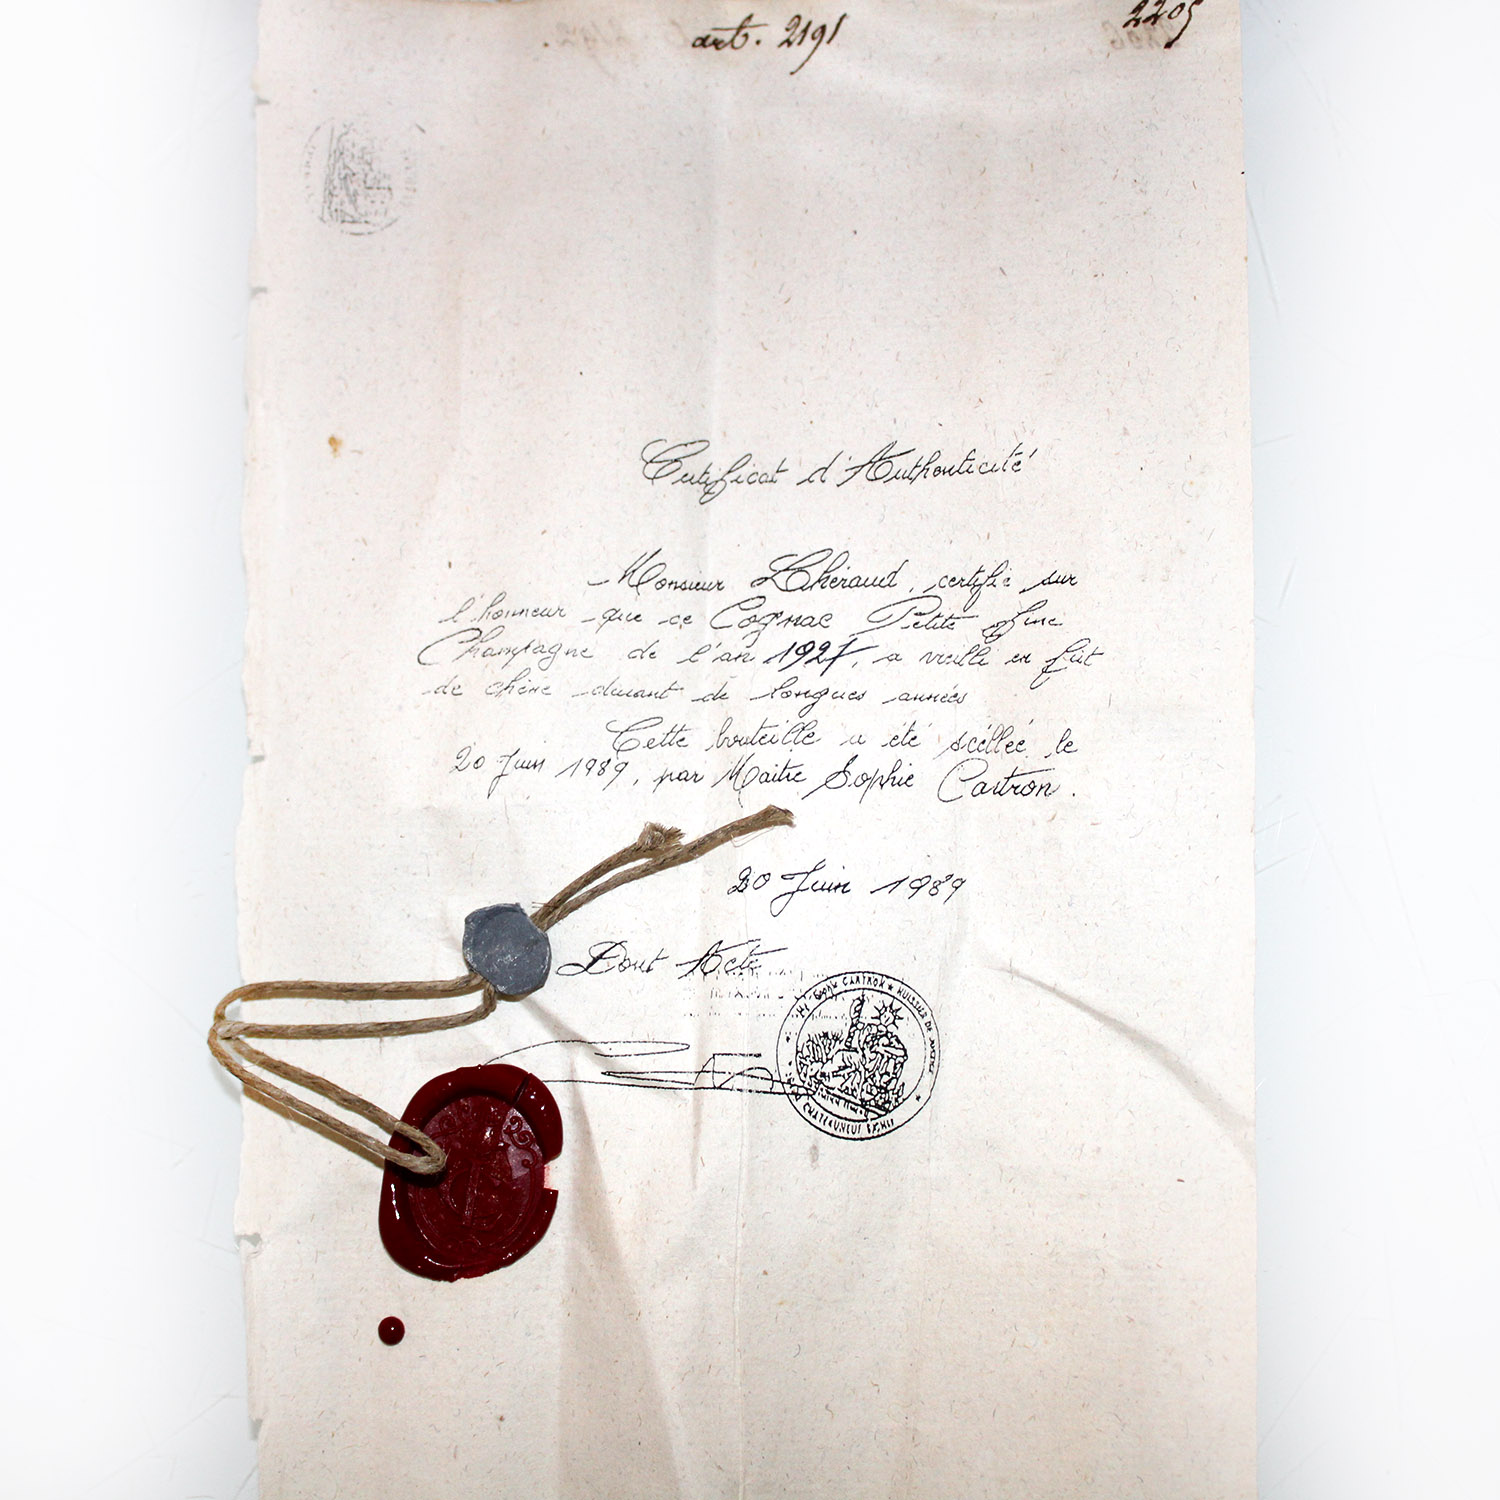 art. 2191
2205
Certificat d'Authenticité
Monsieur Lhéraud, certifie sur
l'honneur que ce Cognac Petite fine
Champagne de l'an 1927, a vieilli en fût
de chêne durant de longues années
Cette bouteille a été scéllée le
20 Juin 1989, par Maître Sophie Cartron.
20 Juin 1989
Dont Acte
Me Sophie CARTRON ★ HUISSIER DE JUSTICE
CHATEAUNEUF